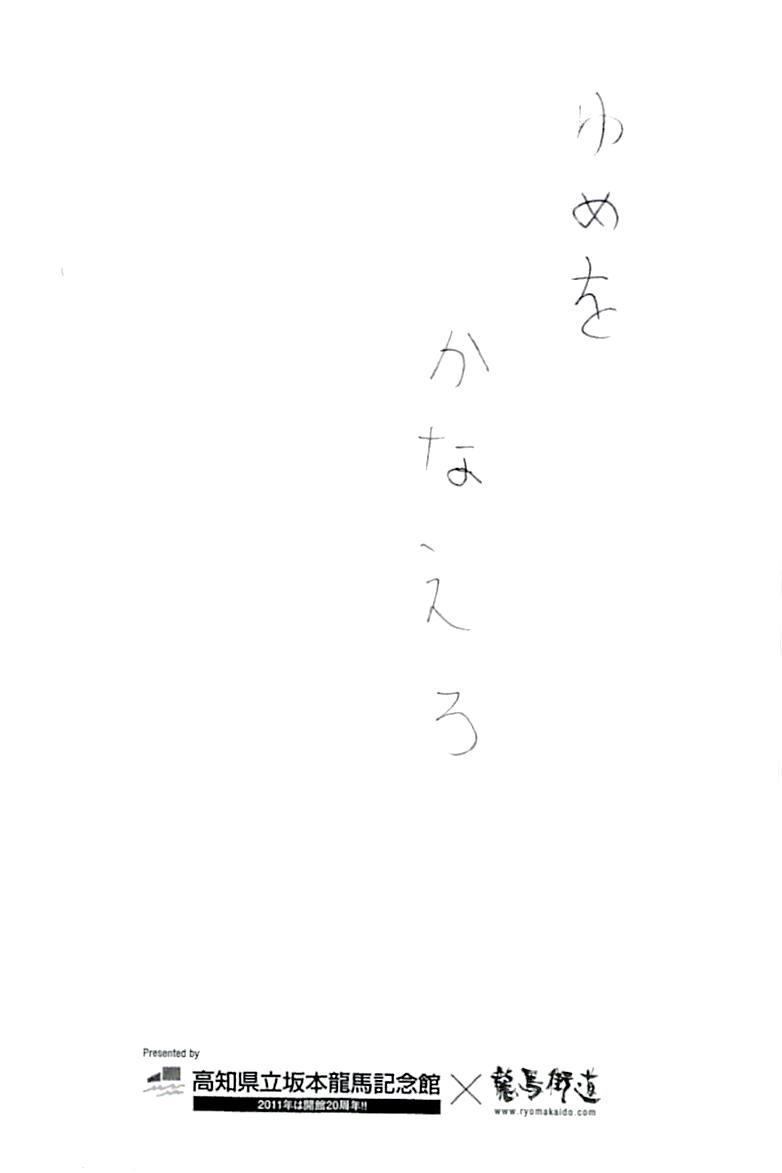 ゆめを
かなえろ
Presented by
高知県立坂本龍馬記念館×龍馬街道
2011年は開館20周年!!
www.ryomakaido.com